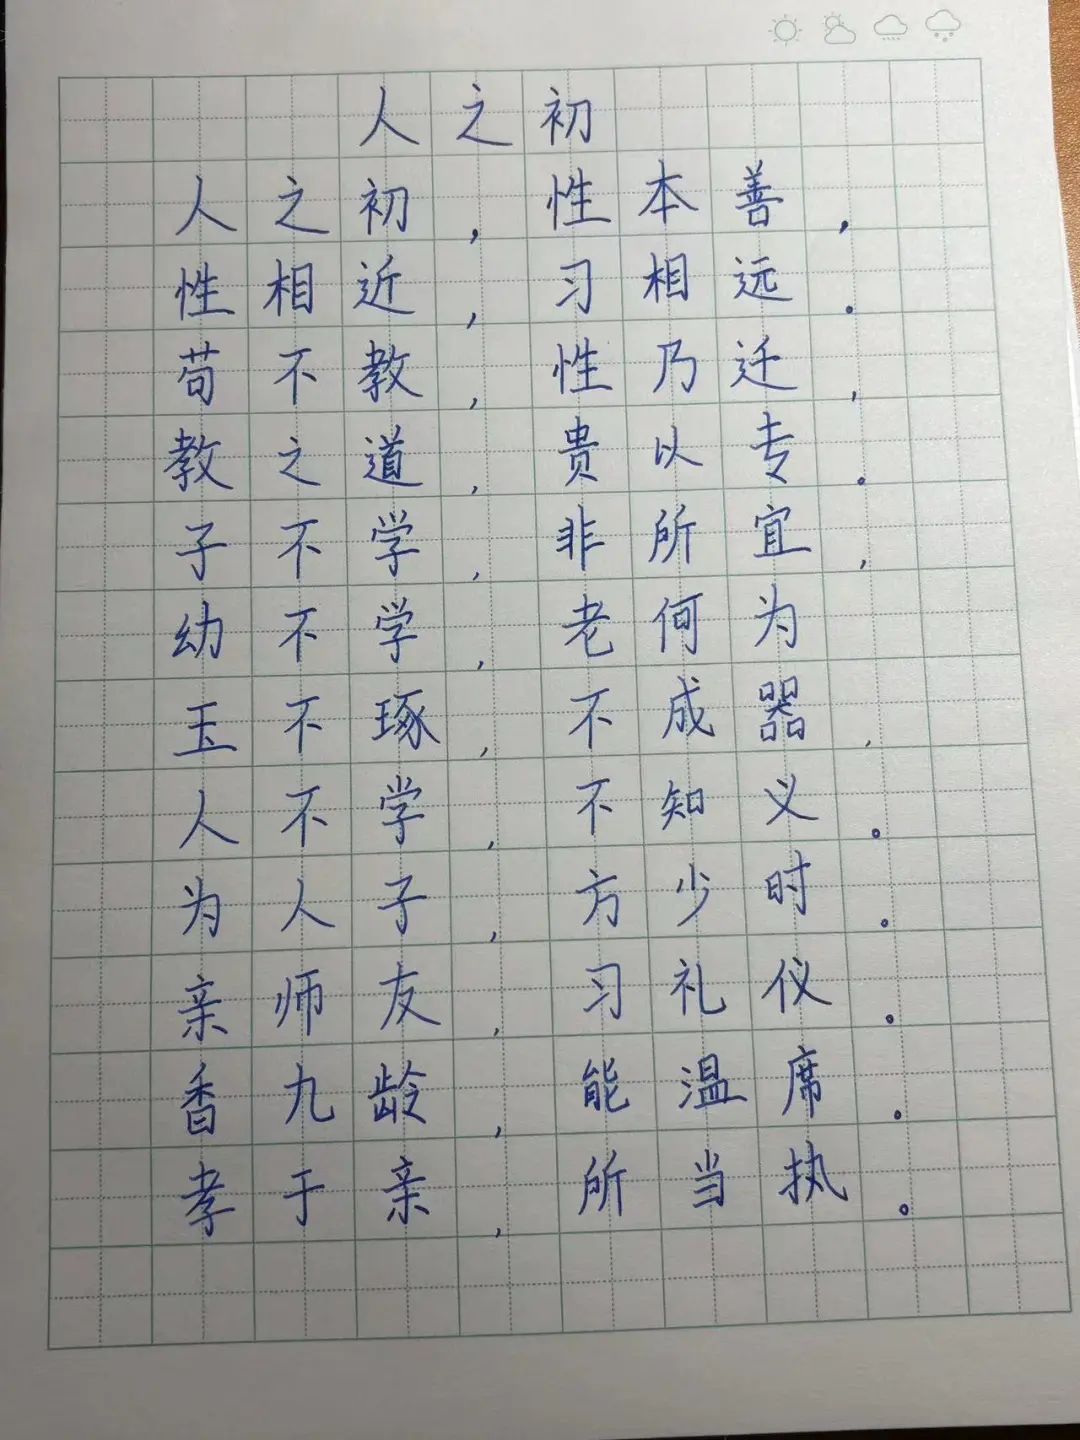 人之初
人之初，性本善，
性相近，习相远。
苟不教，性乃迁，
教之道，贵以专。
子不学，非所宜，
幼不学，老何为
玉不琢，不成器，
人不学，不知义。
为人子，方少时。
亲师友，习礼仪。
香九龄，能温席。
孝于亲，所当执。